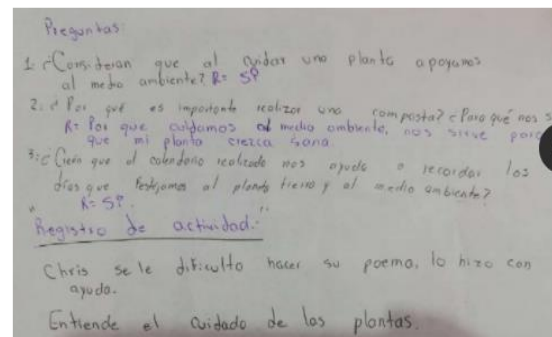 Preguntas:
1: ¿Consideran que al cuidar una planta apoyamos
al medio ambiente? R= Sí
2: ¿Por qué es importante realizar una composta? ¿Para qué nos s
R= Por que cuidamos al medio ambiente, nos sirve para
que mi planta crezca sana.
3: ¿Creen que el calendario realizado nos ayuda a recordar los
días que festejamos al planeta tierra y al medio ambiente?
R= Sí.
"Registro de actividad:"
Chris se le dificulto hacer su poema, lo hizo con
ayuda.
Entiende el cuidado de las plantas.